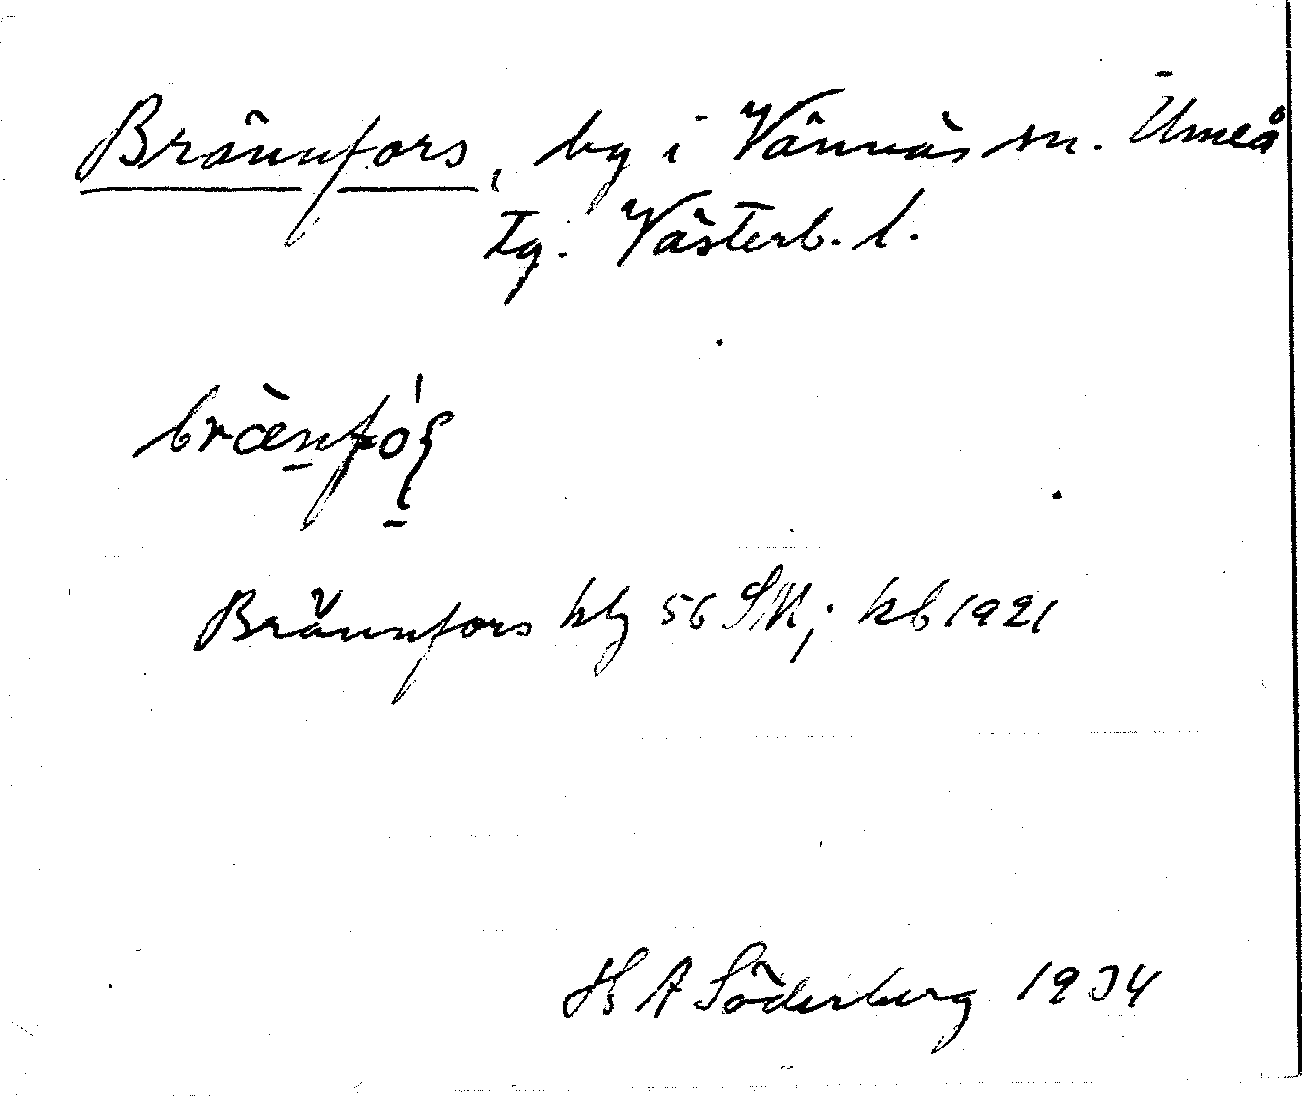 Brännfors, by i Vännäs sn. Umeå
tg. Västerb. l.
brænfó
Brännfors hly 56 SK; kb 1921
H A Söderberg 1934